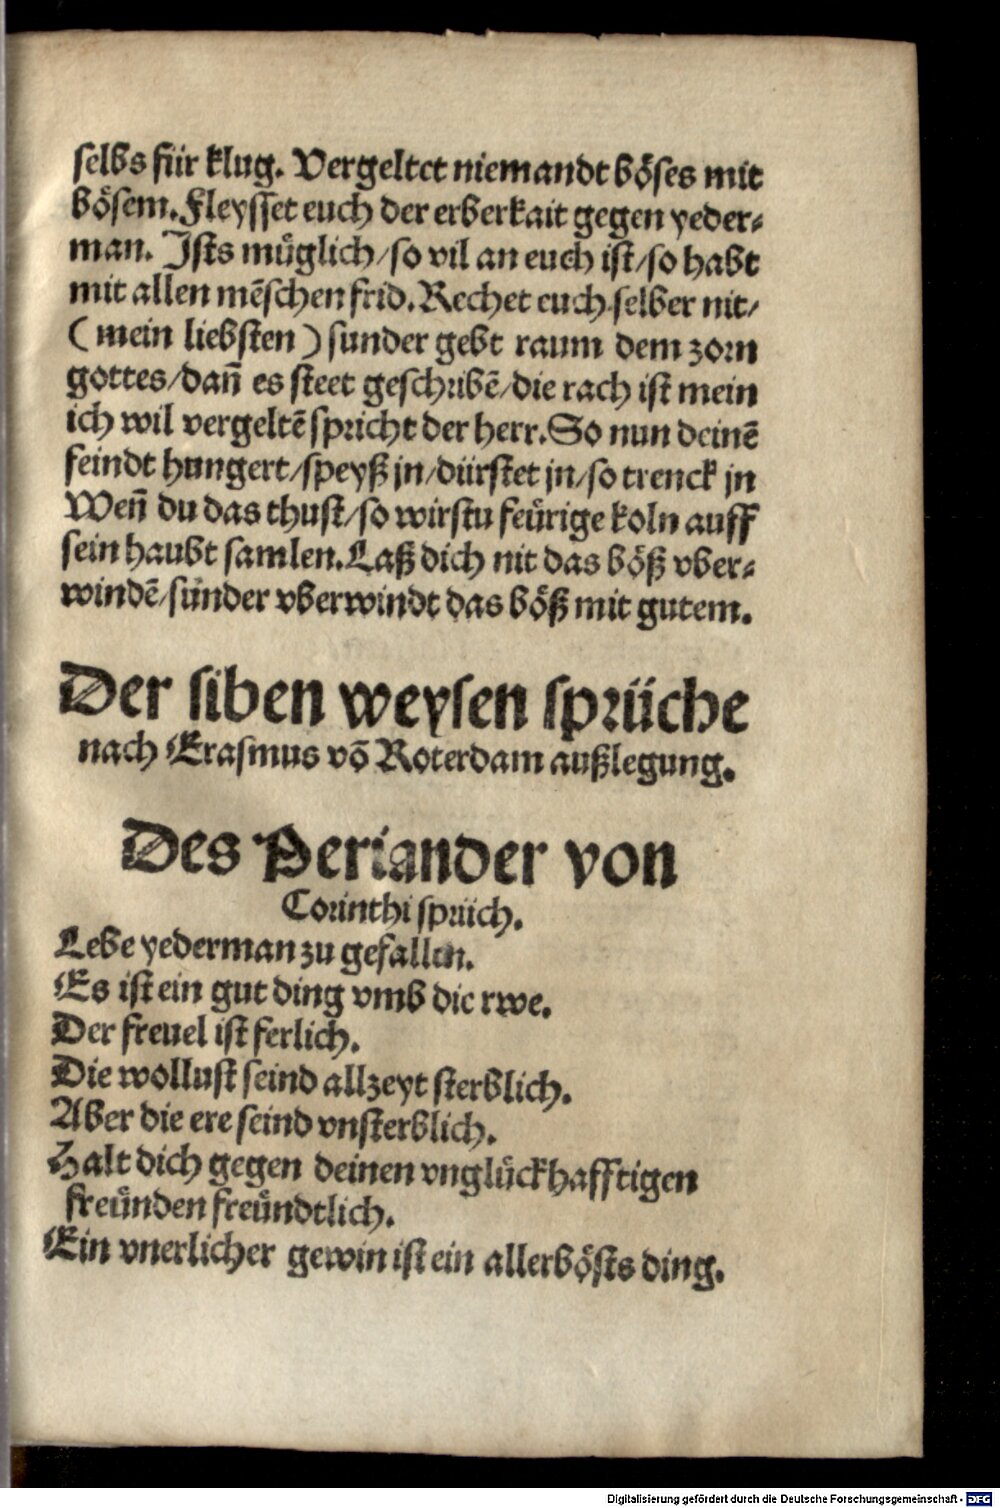 selbs für klug. Vergeltet niemandt böses mit
bösem. Fleysset euch der erberkait gegen yeder⸗
man. Ists müglich/so vil an euch ist/so habt
mit allen mẽschen frid. Rechet euch selber nit/
(mein liebsten) sunder gebt raum dem zorn
gottes/dañ es steet geschribẽ/die rach ist mein
ich wil vergeltẽ spricht der herr. So nun deinẽ
feindt hungert/speyß jn/dürstet jn/so trenck jn
Weñ du das thust/so wirstu feürige koln auff
sein haubt samlen. Laß dich nit das böß vber⸗
windẽ/sunder vberwindt das böß mit gutem.
Der siben weysen sprüche
nach Erasmus võ Roterdam außlegung.
Des Periander von
Corinthi sprüch.
Lebe yederman zu gefallen.
Es ist ein gut ding vmb die rwe.
Der freuel ist ferlich.
Die wollust seind allzeyt sterblich.
Aber die ere seind vnsterblich.
Halt dich gegen deinen vnglückhafftigen
freünden freündtlich.
Ein vnerlicher gewin ist ein allerbösts ding.
Digitalisierung gefördert durch die Deutsche Forschungsgemeinschaft - DFG